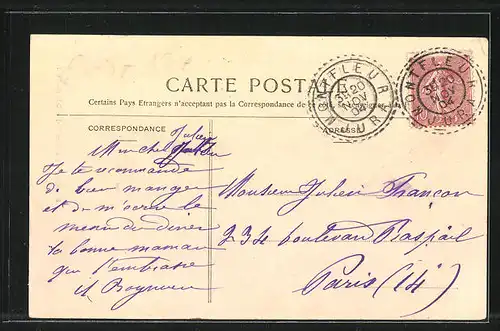 CARTE POSTALE
Certains Pays Etrangers n'acceptent pas la Correspondance de
CORRESPONDANCE
ADRESSE
MONTFLEUR
20
04
JURA
MONTFLEUR
04
JURA
Mon cher Julien
Je te recommande
de bien manger
et de m'écrire le
menu du diner
ta bonne maman
qui t'embrasse
Monsieur Julien Françon
234 boulevard Raspail
Paris (14e)